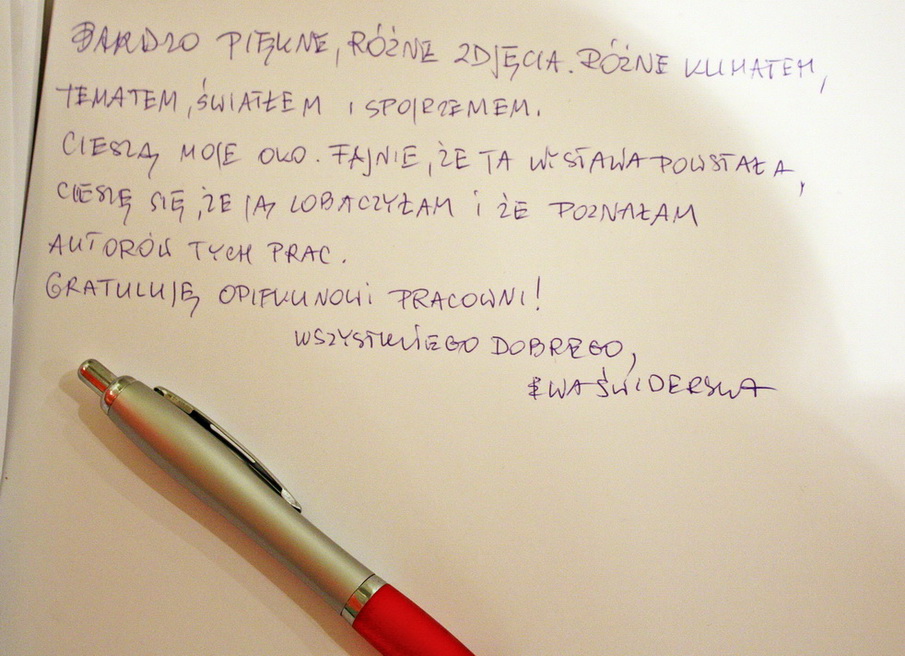 BARDZO PIĘKNE, RÓŻNE ZDJĘCIA. RÓŻNE KLIMATEM,
TEMATEM, ŚWIATŁEM I SPOJRZENIEM.
CIESZĄ MOJE OKO. FAJNIE, ŻE TA WYSTAWA POWSTAŁA,
CIESZĘ SIĘ, ŻE JĄ ZOBACZYŁAM I ŻE POZNAŁAM
AUTORÓW TYCH PRAC.
GRATULUJĘ OPIEKUNOWI PRACOWNI!
WSZYSTKIEGO DOBREGO,
EWA ŚWIDERSKA